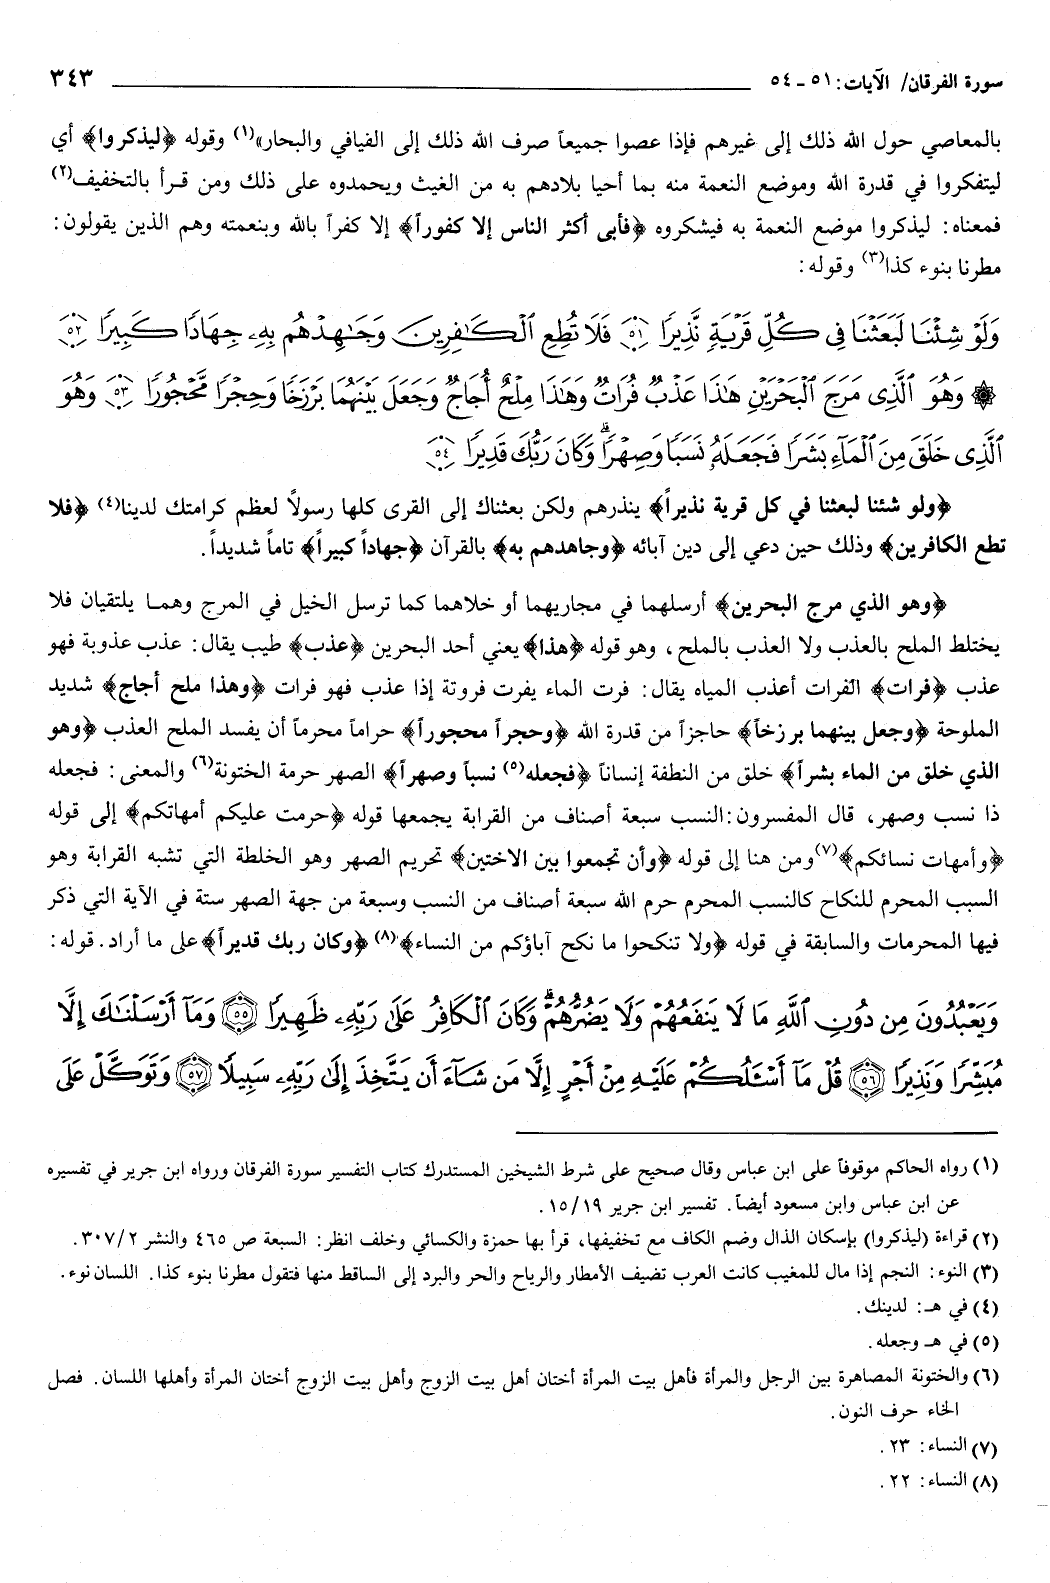 سورة الفرقان/ الآيات: ٥١ - ٥٤ ٣٤٣
بالمعاصي حول الله ذلك إلى غيرهم فإذا عصوا جميعاً صرف الله ذلك إلى الفيافي والبحار»(١) وقوله ﴿ليذكروا﴾ أي
ليتفكروا في قدرة الله وموضع النعمة منه بما أحيا بلادهم به من الغيث ويحمدوه على ذلك ومن قرأ بالتخفيف(٢)
فمعناه: ليذكروا موضع النعمة به فيشكروه ﴿فأبى أكثر الناس إلا كفوراً﴾ إلا كفراً بالله وبنعمته وهم الذين يقولون:
مطرنا بنوء كذا(٣) وقوله:
وَلَوْ شِئْنَا لَبَعَثْنَا فِي كُلِّ قَرْيَةٍ نَّذِيرًا ٥١ فَلَا تُطِعِ الْكَافِرِينَ وَجَاهِدْهُم بِهِ جِهَادًا كَبِيرًا ٥٢
۞ وَهُوَ الَّذِي مَرَجَ الْبَحْرَيْنِ هَٰذَا عَذْبٌ فُرَاتٌ وَهَٰذَا مِلْحٌ أُجَاجٌ وَجَعَلَ بَيْنَهُمَا بَرْزَخًا وَحِجْرًا مَّحْجُورًا ٥٣ وَهُوَ
الَّذِي خَلَقَ مِنَ الْمَاءِ بَشَرًا فَجَعَلَهُ نَسَبًا وَصِهْرًا ۗ وَكَانَ رَبُّكَ قَدِيرًا ٥٤
﴿ولو شئنا لبعثنا في كل قرية نذيراً﴾ ينذرهم ولكن بعثناك إلى القرى كلها رسولاً لعظم كرامتك لدينا(٤) ﴿فلا
تطع الكافرين﴾ وذلك حين دعي إلى دين آبائه ﴿وجاهدهم به﴾ بالقرآن ﴿جهاداً كبيراً﴾ تاماً شديداً.
﴿وهو الذي مرج البحرين﴾ أرسلهما في مجاريهما أو خلاهما كما ترسل الخيل في المرج وهما يلتقيان فلا
يختلط الملح بالعذب ولا العذب بالملح، وهو قوله ﴿هذا﴾ يعني أحد البحرين ﴿عذب﴾ طيب يقال: عذب عذوبة فهو
عذب ﴿فرات﴾ الفرات أعذب المياه يقال: فرت الماء يفرت فروتة إذا عذب فهو فرات ﴿وهذا ملح أجاج﴾ شديد
الملوحة ﴿وجعل بينهما برزخاً﴾ حاجزاً من قدرة الله ﴿وحجراً محجوراً﴾ حراماً محرماً أن يفسد الملح العذب ﴿وهو
الذي خلق من الماء بشراً﴾ خلق من النطفة إنساناً ﴿فجعله(٥) نسباً وصهراً﴾ الصهر حرمة الختونة(٦) والمعنى: فجعله
ذا نسب وصهر، قال المفسرون: النسب سبعة أصناف من القرابة يجمعها قوله ﴿حرمت عليكم أمهاتكم﴾ إلى قوله
﴿وأمهات نسائكم﴾(٧) ومن هنا إلى قوله ﴿وأن تجمعوا بين الاختين﴾ تحريم الصهر وهو الخلطة التي تشبه القرابة وهو
السبب المحرم للنكاح كالنسب المحرم حرم الله سبعة أصناف من النسب وسبعة من جهة الصهر ستة في الآية التي ذكر
فيها المحرمات والسابقة في قوله ﴿ولا تنكحوا ما نكح آباؤكم من النساء﴾(٨) ﴿وكان ربك قديراً﴾ على ما أراد. قوله:
وَيَعْبُدُونَ مِن دُونِ اللَّهِ مَا لَا يَنفَعُهُمْ وَلَا يَضُرُّهُمْ ۗ وَكَانَ الْكَافِرُ عَلَىٰ رَبِّهِ ظَهِيرًا ٥٥ وَمَا أَرْسَلْنَاكَ إِلَّا
مُبَشِّرًا وَنَذِيرًا ٥٦ قُلْ مَا أَسْأَلُكُمْ عَلَيْهِ مِنْ أَجْرٍ إِلَّا مَن شَاءَ أَن يَتَّخِذَ إِلَىٰ رَبِّهِ سَبِيلًا ٥٧ وَتَوَكَّلْ عَلَى
(١) رواه الحاكم موقوفاً على ابن عباس وقال صحيح على شرط الشيخين المستدرك كتاب التفسير سورة الفرقان ورواه ابن جرير في تفسيره
عن ابن عباس وابن مسعود أيضاً. تفسير ابن جرير ١٥/١٩.
(٢) قراءة (ليذكروا) بإسكان الذال وضم الكاف مع تخفيفها، قرأ بها حمزة والكسائي وخلف انظر: السبعة ص ٤٦٥ والنشر ٣٠٧/٢.
(٣) النوء: النجم إذا مال للمغيب كانت العرب تضيف الأمطار والرياح والحر والبرد إلى الساقط منها فتقول مطرنا بنوء كذا. اللسان نوء.
(٤) في هـ: لدينك.
(٥) في هـ وجعله.
(٦) والختونة المصاهرة بين الرجل والمرأة فأهل بيت المرأة أختان أهل بيت الزوج وأهل بيت الزوج أختان المرأة وأهلها اللسان. فصل
الخاء حرف النون.
(٧) النساء: ٢٣.
(٨) النساء: ٢٢.